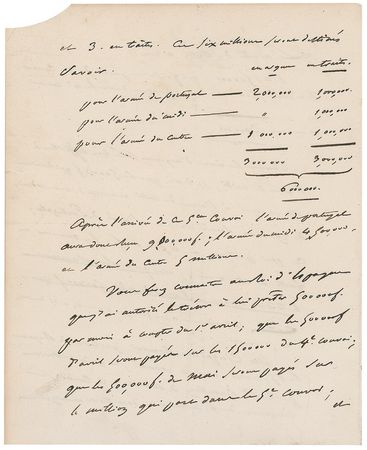 et 3. en traites. Ces six millions seront destinés
Savoir.
en argent en traites.
pour l'armée de portugal — 2,000,000 1,000,000.
pour l'armée du midi — " 1,000,000
pour l'armée du centre — 1 000,000 1,000,000
3 000000 3,000,000
6 000000.
Après l'arrivée de ce 5e Convoi l'armée de portugal
aura donc reçu ; l'armée du midi 4,500000.
et l'armée du Centre 5 millions.
Vous ferez connaitre au roi d'Espagne
que j'ai autorisé le trésor à lui prêter 500000f.
par mois à compter du 1er avril; que les 500000f
d'avril seront payés sur les 1500000 du 4e Convoi;
que les 500,000f. de Mai seront payés sur
le million qui part dans le 5e Convoi;
et